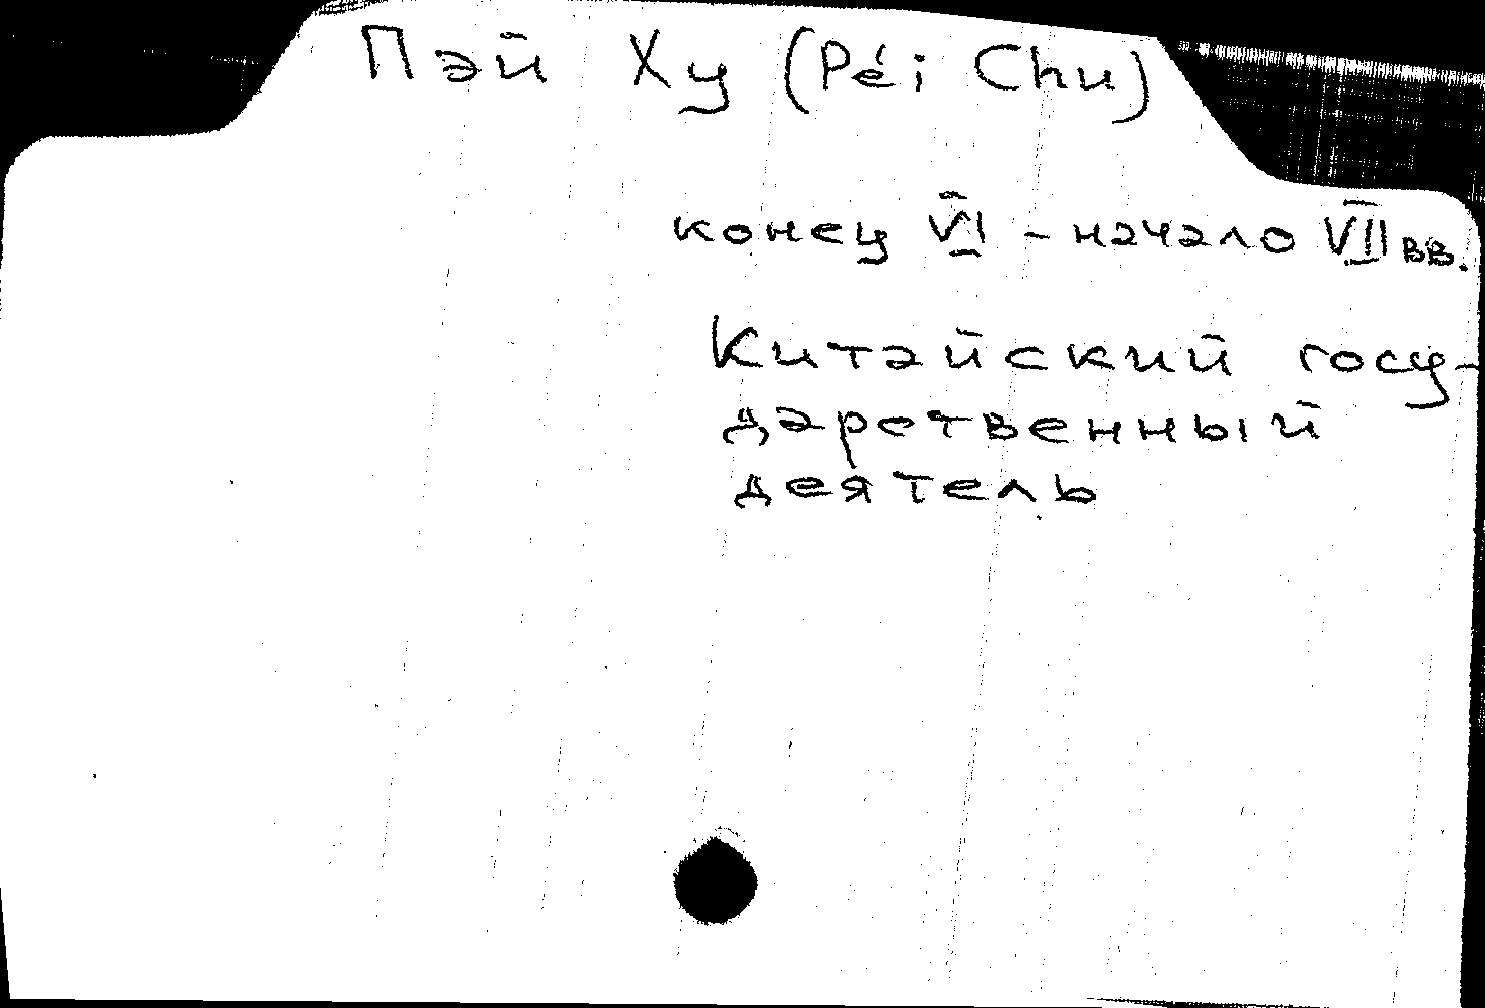 Пэй Ху (Péi Chu)
конец VI - начало VII вв.
Китайский госу-
дарственный
деятель